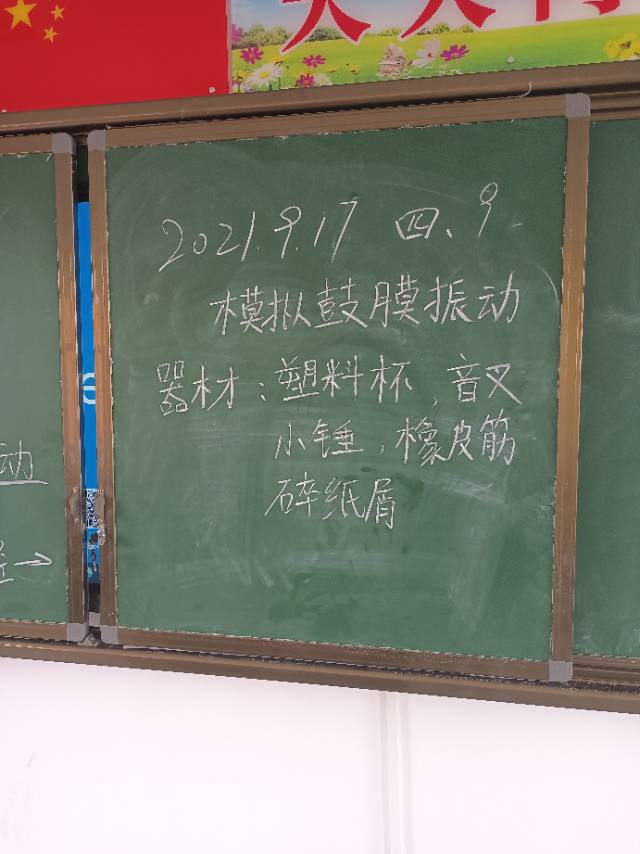 2021.9.17 四、9
模拟鼓膜振动
器材：塑料杯，音叉
小锤，橡皮筋
碎纸屑
动